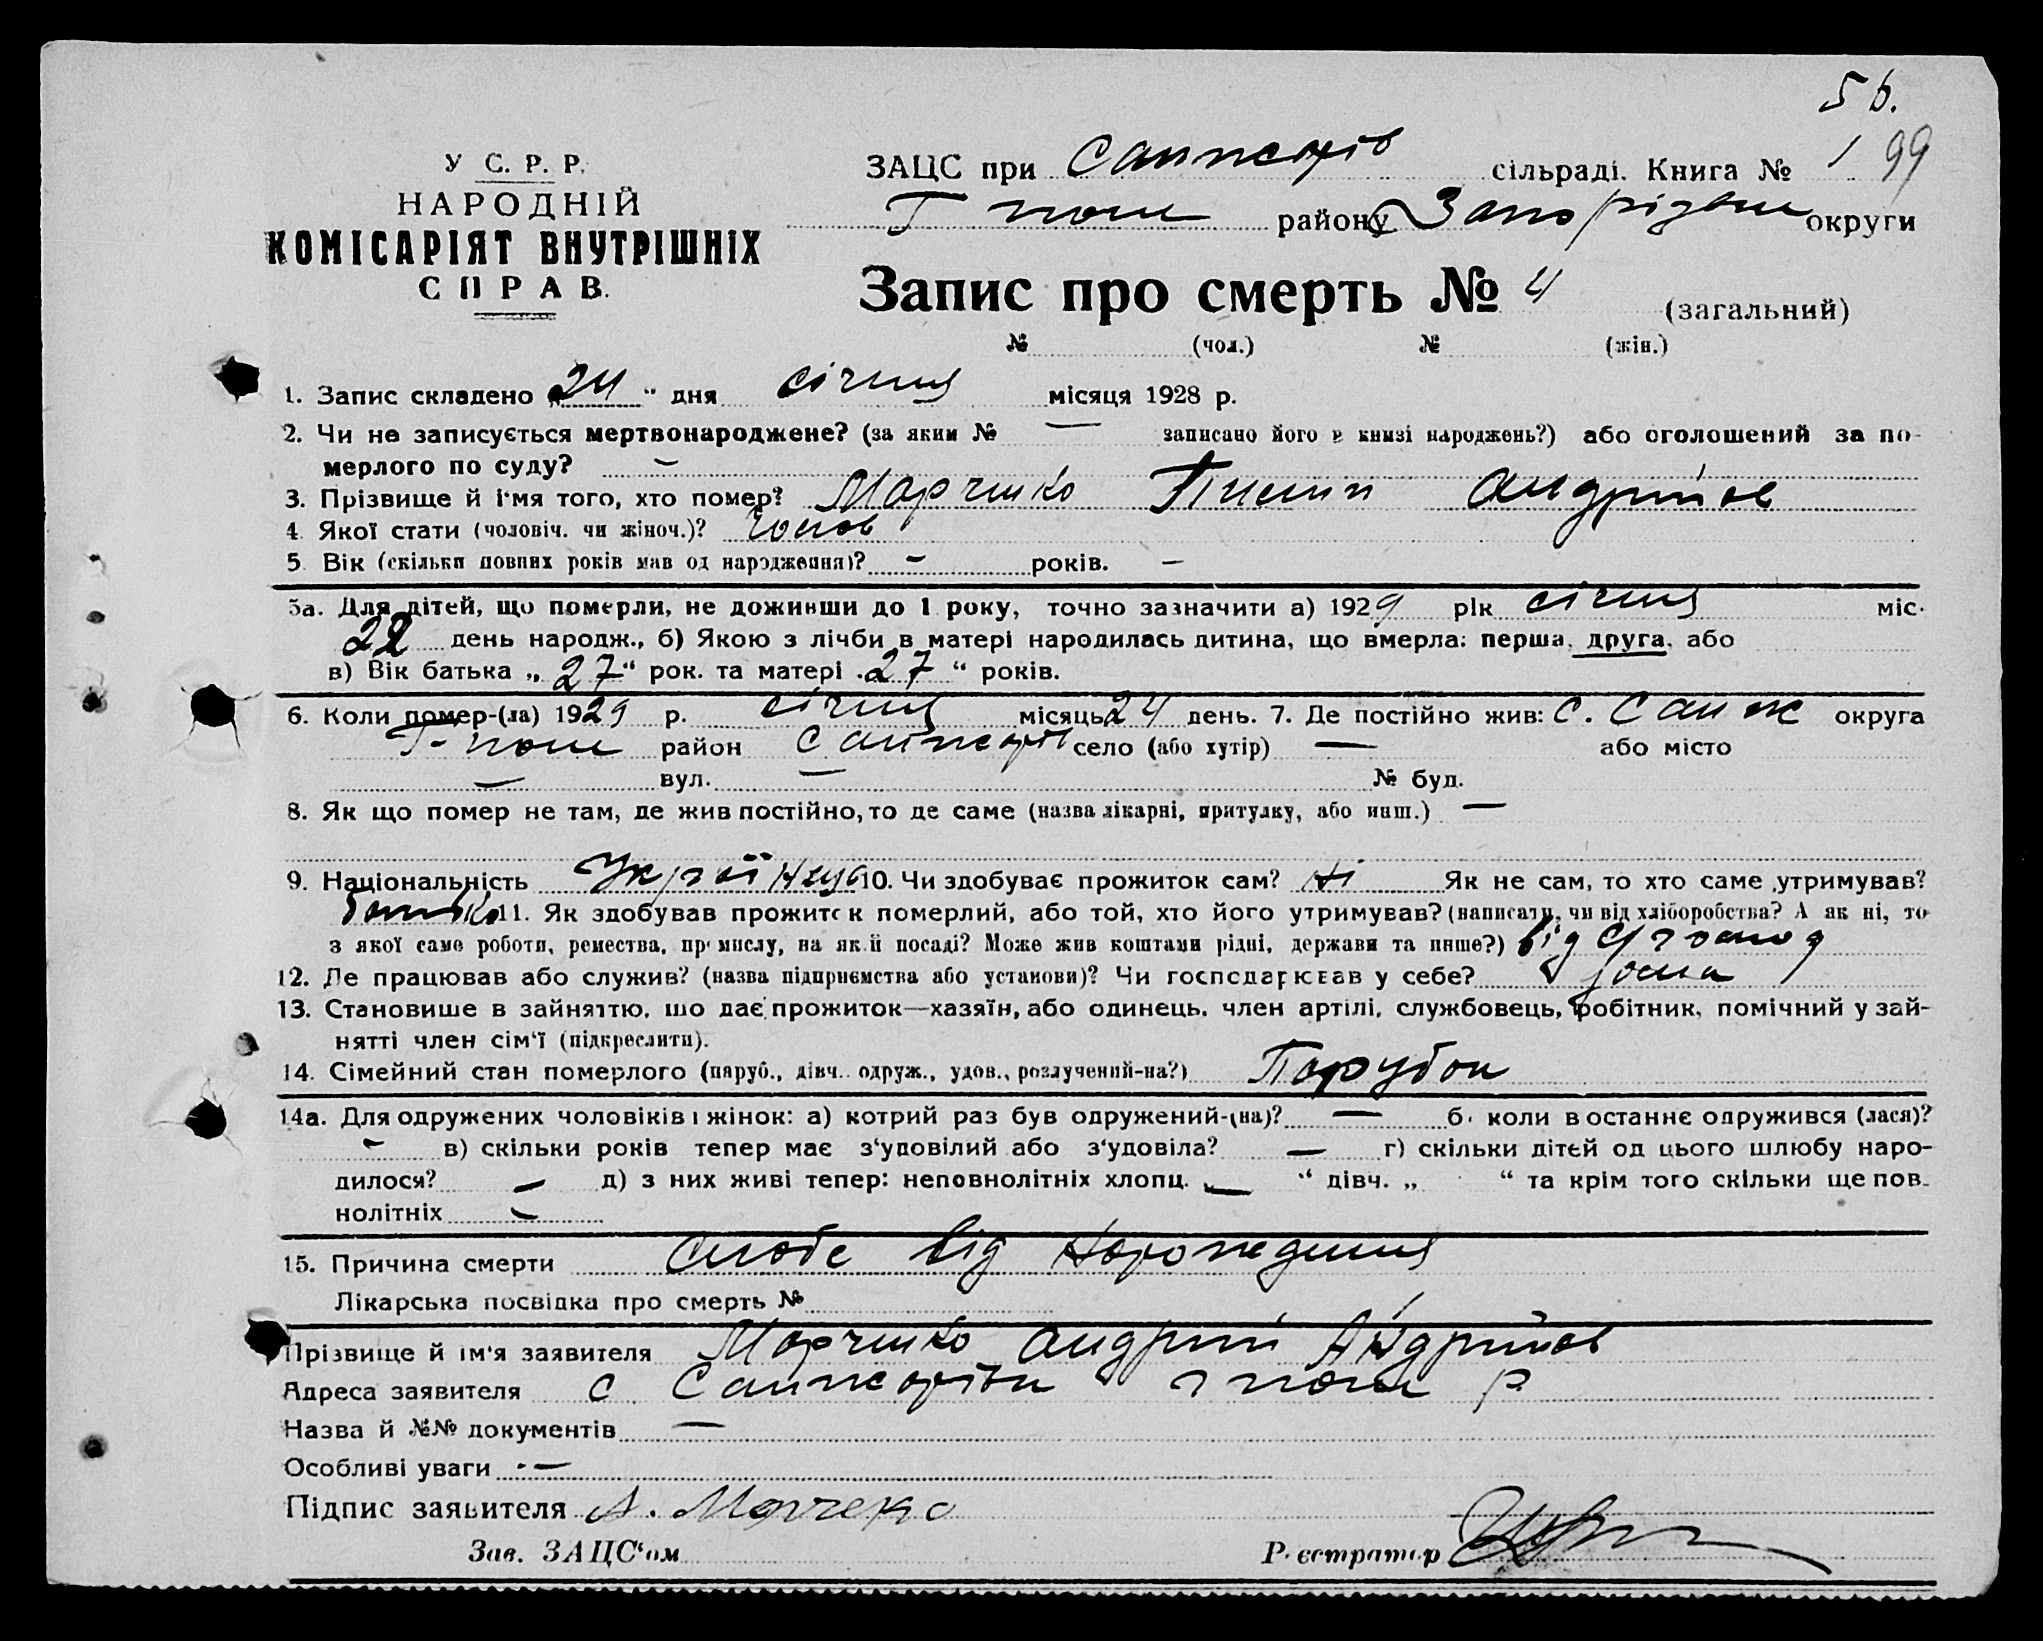 5 б.
У С. Р. Р.
НАРОДНІЙ
КОМІСАРІЯТ ВНУТРІШНІХ
СПРАВ.
ЗАЦС при Санжарів сільраді. Книга № 1 99
Г поли району Запорізьки округи
Запис про смерть № 4 (загальний)
№ (чол.) № (жін.)
1. Запис складено „24" дня січня місяця 1928 р.
2. Чи не записується мертвонароджене? (за яким № — записано його в книзі народжень?) або оголошений за по-
мерлого по суду? —
3. Прізвище й і'мя того, хто помер? Марченко Пилип Андрійов
4. Якої стати (чоловіч. чи жіноч.)? Чолов
5. Вік (скільки повних років мав од народження)? — років. —
5а. Для дітей, що померли, не доживши до 1 року, точно зазначити а) 1929 рік січня міс.
22 день народж., б) Якою з лічби в матері народилась дитина, що вмерла: перша, друга, або
в) Вік батька „27" рок. та матері „27" років.
6. Коли помер-(ла) 1929 р. січня місяць 24 день. 7. Де постійно жив: с. Санж округа
Г-поли район Санжарів село (або хутір) — або місто
— вул. — № буд.
8. Як що помер не там, де жив постійно, то де саме (назва лікарні, притулку, або инш.) —
9. Національність Україн 10. Чи здобуває прожиток сам? Ні Як не сам, то хто саме утримував?
Батько 11. Як здобував прожиток померлий, або той, хто його утримував? (написати, чи від хліборобства? А як ні, то
з якої саме роботи, ремества, промислу, на якій посаді? Може жив коштами рідні, держави та инше?) від
12. Де працював або служив? (назва підприємства або установи)? Чи господарював у себе? дома
13. Становише в зайняттю, що дає прожиток—хазяїн, або одинець, член артілі, службовець, робітник, помічний у зай-
нятті член сім'ї (підкреслити).
14. Сімейний стан померлого (паруб., дівч. одруж., удов., розлучений-на?) Парубок
14а. Для одружених чоловіків і жінок: а) котрий раз був одружений-(на)? — б) коли в останнє одружився (лася)?
— в) скільки років тепер має з'удовілий або з'удовіла? — г) скільки дітей од цього шлюбу наро-
дилося? — д) з них живі тепер: неповнолітніх хлопц. „— " дівч. „ " та крім того скільки ще пов-
нолітніх —
15. Причина смерти слабе від нарождения
Лікарська посвідка про смерть №
Прізвище й ім'я заявителя Марченко Андрій Андрійов
Адреса заявителя с Санжарівки Гполи р
Назва й №№ документів —
Особливі уваги —
Підпис заявителя А. Марченко
Зав. ЗАЦС'ом Реєстратор